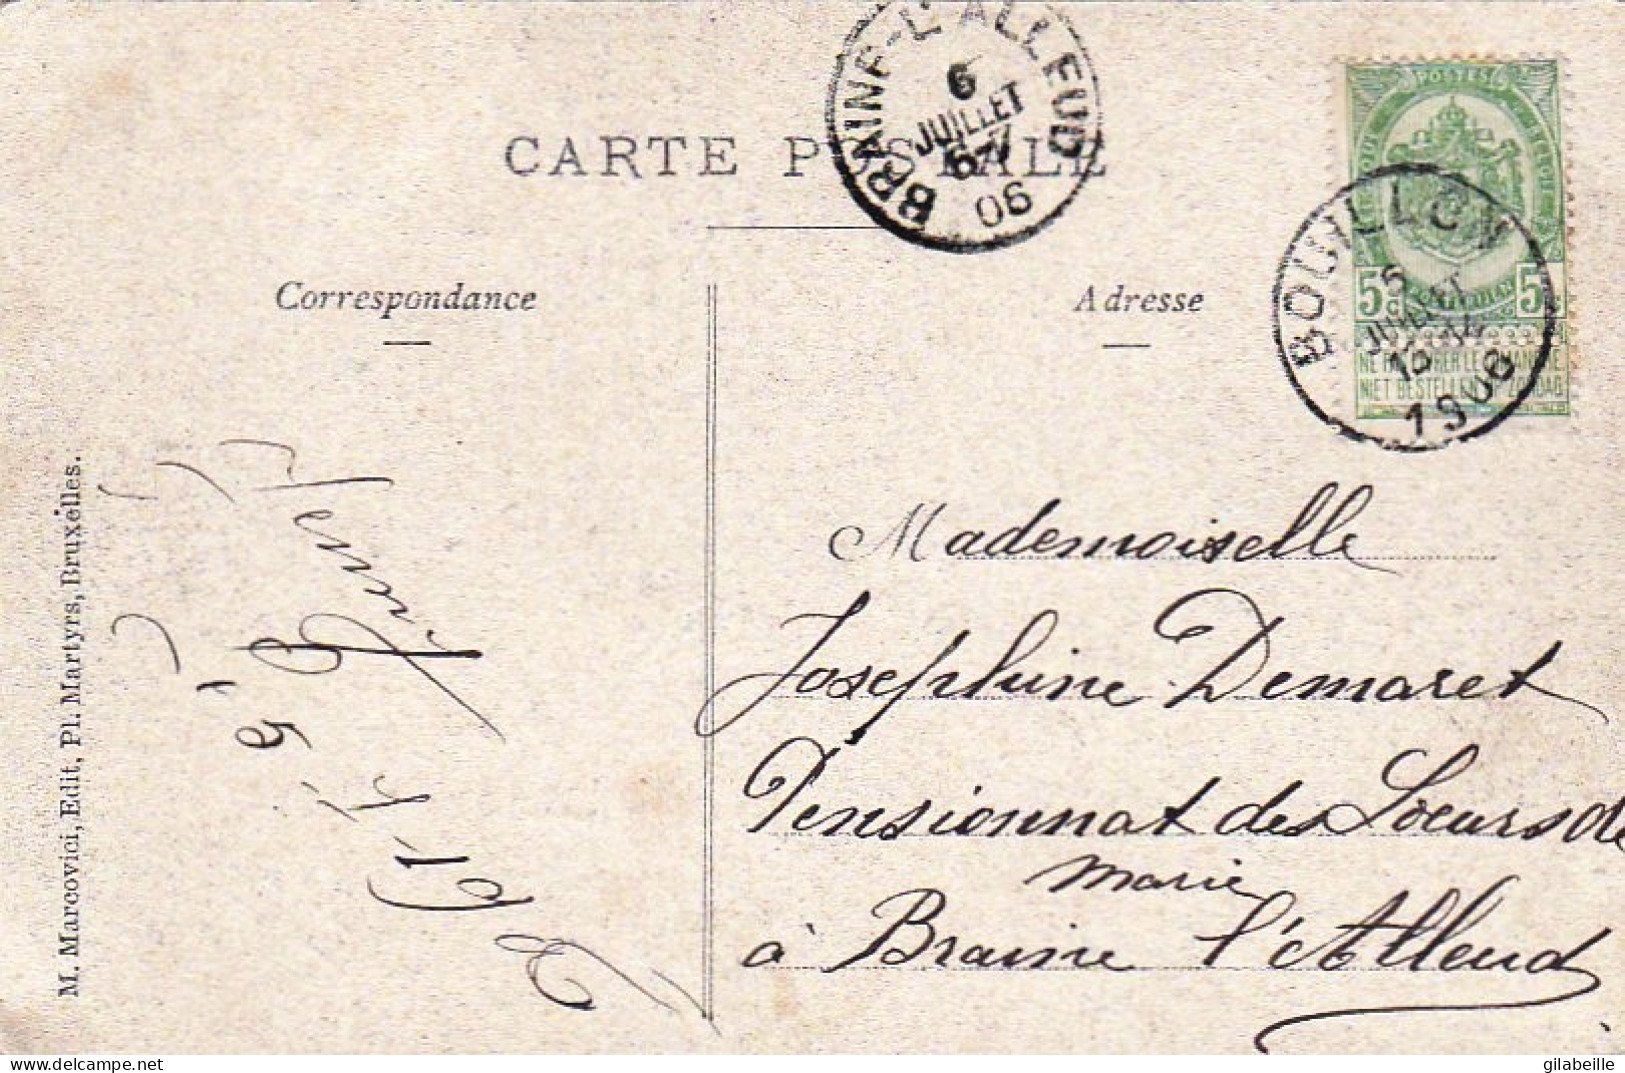 BRAINE-L'ALLEUD
6
JUILLET
06
CARTE POSTALE
Correspondance
Adresse
POSTES
5c 5c
NE PAS LIVRER LE DIMANCHE
NIET BESTELLEN OP ZONDAG
BOUILLON
JUILLET
1906
Mademoiselle
Josephine Demaret
Pensionnat des Soeurs de
Marie
à Braine l'Alleud
M. Marcovici, Edit, Pl. Martyrs, Bruxelles.
gilabeille
delcampe.net